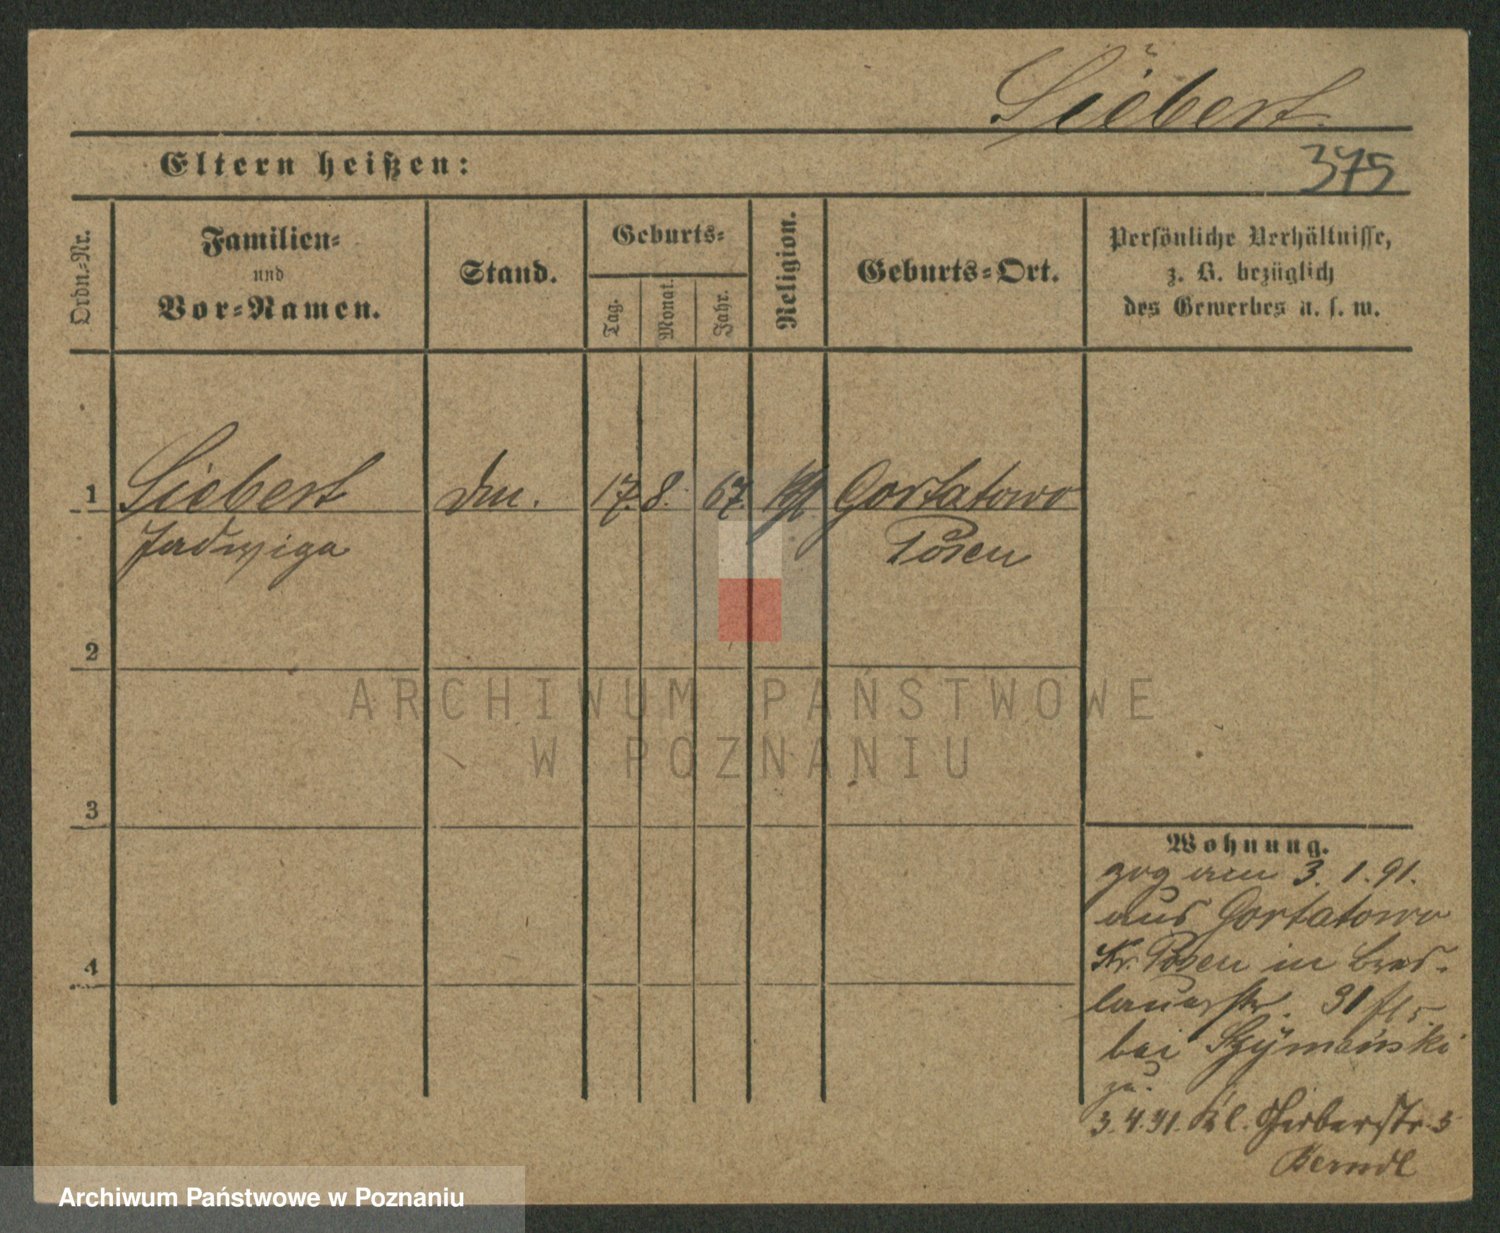 Siebert
Eltern heißen:
375
Ordn.-Nr.
Familien-
und
Vor-Namen.
Stand.
Geburts-
Tag.
Monat.
Jahr.
Religion.
Geburts-Ort.
Persönliche Verhältnisse,
z. B. bezüglich
des Gewerbes u. s. w.
1 Siebert 17. 8. 67. Gortatowo
Jadwiga Posen
2
3
4
Wohnung.
zog am 3. 1. 91.
aus Gortatowo
Kr. Posen in Bres-
lauerstr. 31
bei Szymański
zu.
3.4.91. Kl. Gerberstr. 5
Berndt
ARCHIWUM PAŃSTWOWE
W POZNANIU
Archiwum Państwowe w Poznaniu